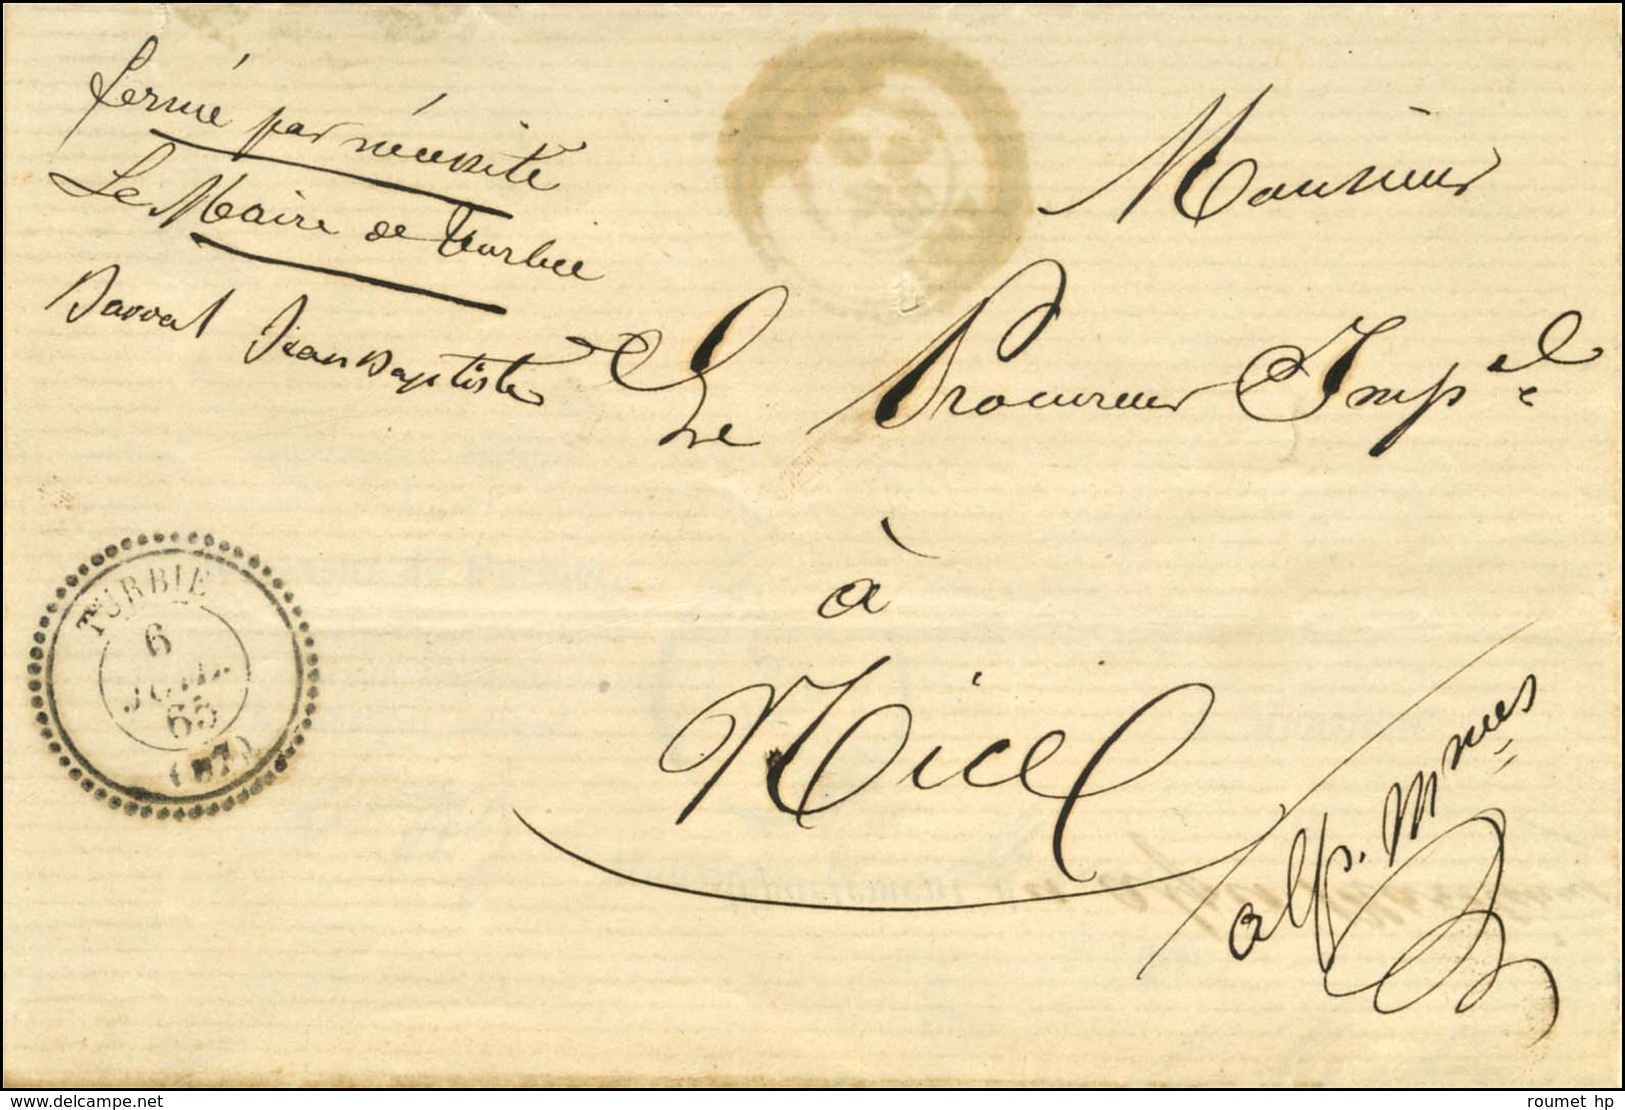 fermé par nécessité
Le Maire de Turbie
Barral Jean Baptiste
Monsieur
Le Procureur Imp.el
à
Nice
alp. Mmes
TURBIE
6
JUIL.
65
(87)
roumet hp